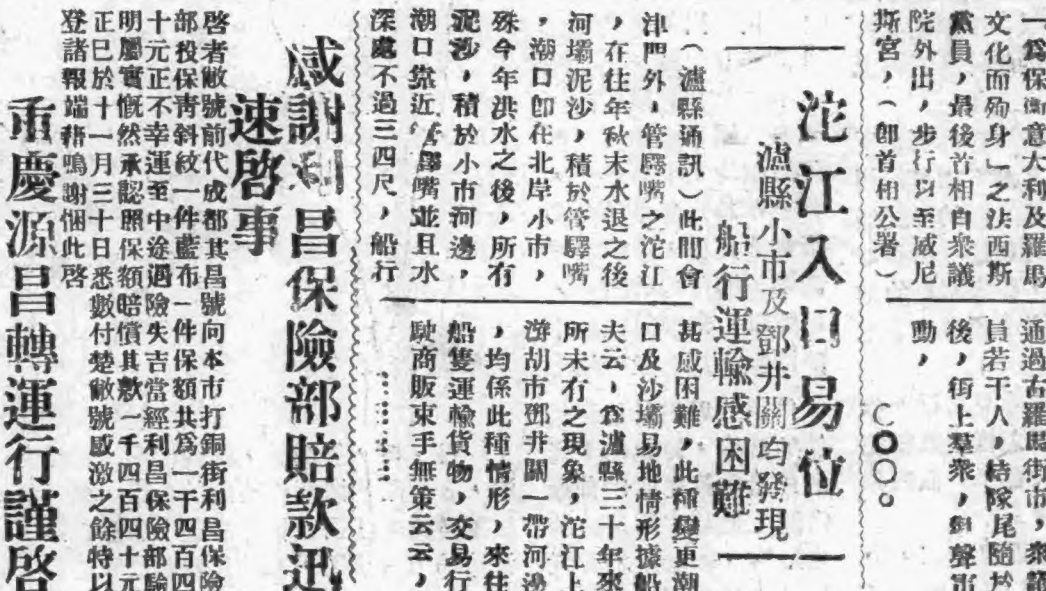 一爲保衛意大利及羅馬
文化而殉身」之法西斯
黨員，最後首相自衆議
院外出，步行以至威尼
斯宮，（卽首相公署）
通過古羅馬街市，衆議
員若干人，結隊尾隨於
後，街上羣衆，
動，
〇〇〇。
沱江入口易位
瀘縣小市及鄧井關均發現
船行運輸感困難
（瀘縣通訊）此間會
津門外，管驛嘴之沱江
，在往年秋末水退之後
河壩泥沙，積於管驛嘴
，潮口卽在北岸小市，
殊今年洪水之後，所有
泥沙，積於小市河邊，
潮口靠近管驛嘴並且水
深處不過三四尺，船行
甚感困難，此種變更潮
口及沙壩易地情形據船
夫云，爲瀘縣三十年來
所未有之現象，沱江上
游胡市鄧井關一帶河邊
，均係此種情形，來往
船隻運輸貨物，交易行
駛商販束手無策云云，
感謝利昌保險部賠款迅
速啓事
啓者敝號前代成都其昌號向本市打銅街利昌保險
部投保靑斜紋一件藍布一件保額共爲一千四百四
十元正不幸運至中途遇險失吉當經利昌保險部驗
明屬實慨然承認照保額賠償其數一千四百四十元
正已於十一月三十日悉數付楚敝號感激之餘特以
登諸報端藉鳴謝悃此啓
重慶源昌轉運行謹啓